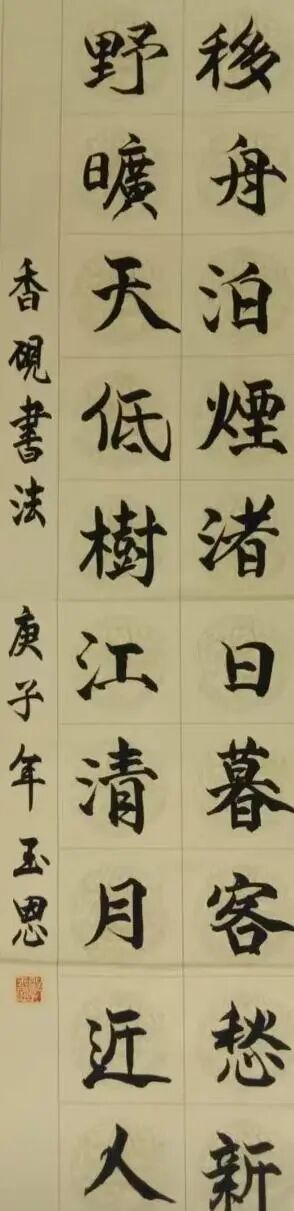 移舟泊煙渚日暮客愁新
野曠天低樹江清月近人
香硯書法 庚子年玉思